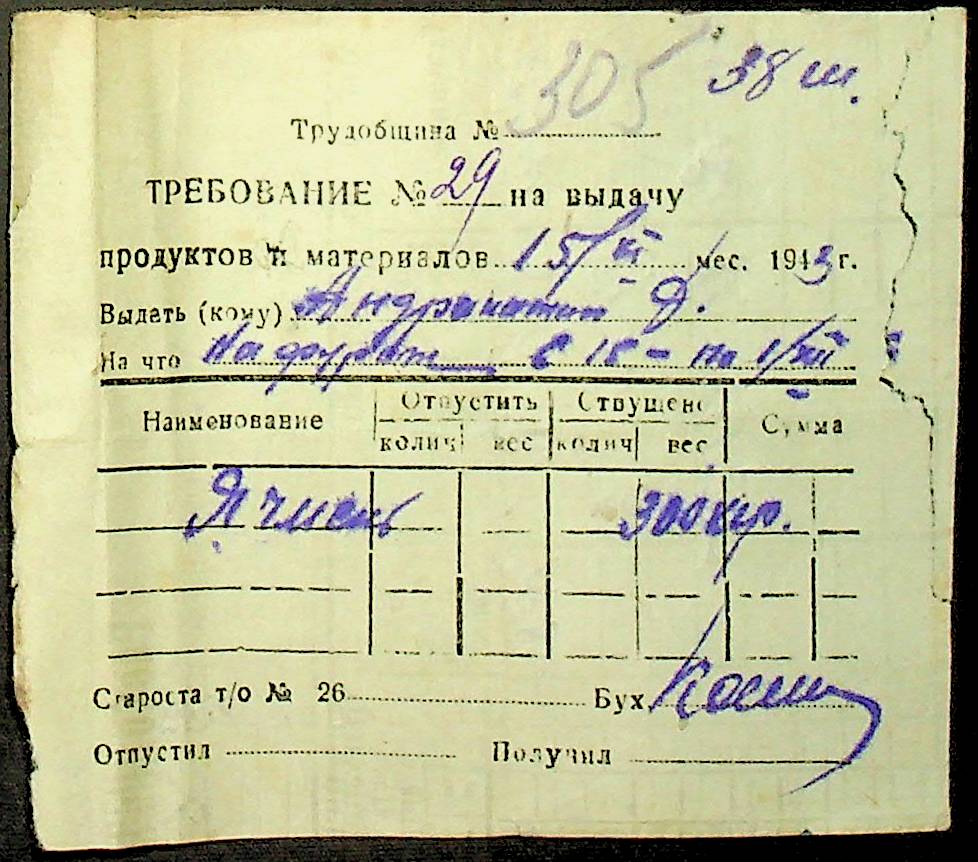 305 38 ш.
Трудобщина №
ТРЕБОВАНИЕ № 29 на выдачу
продуктов и материалов 15/VII мес. 1943 г.
Выдать (кому) Д.
На что На фураж с 15 - по
Наименование Отпустить Отпущено Сумма
колич вес колич вес
Ячмень 300 кгр.
Староста т/о № 26 Бух.
Отпустил Получил